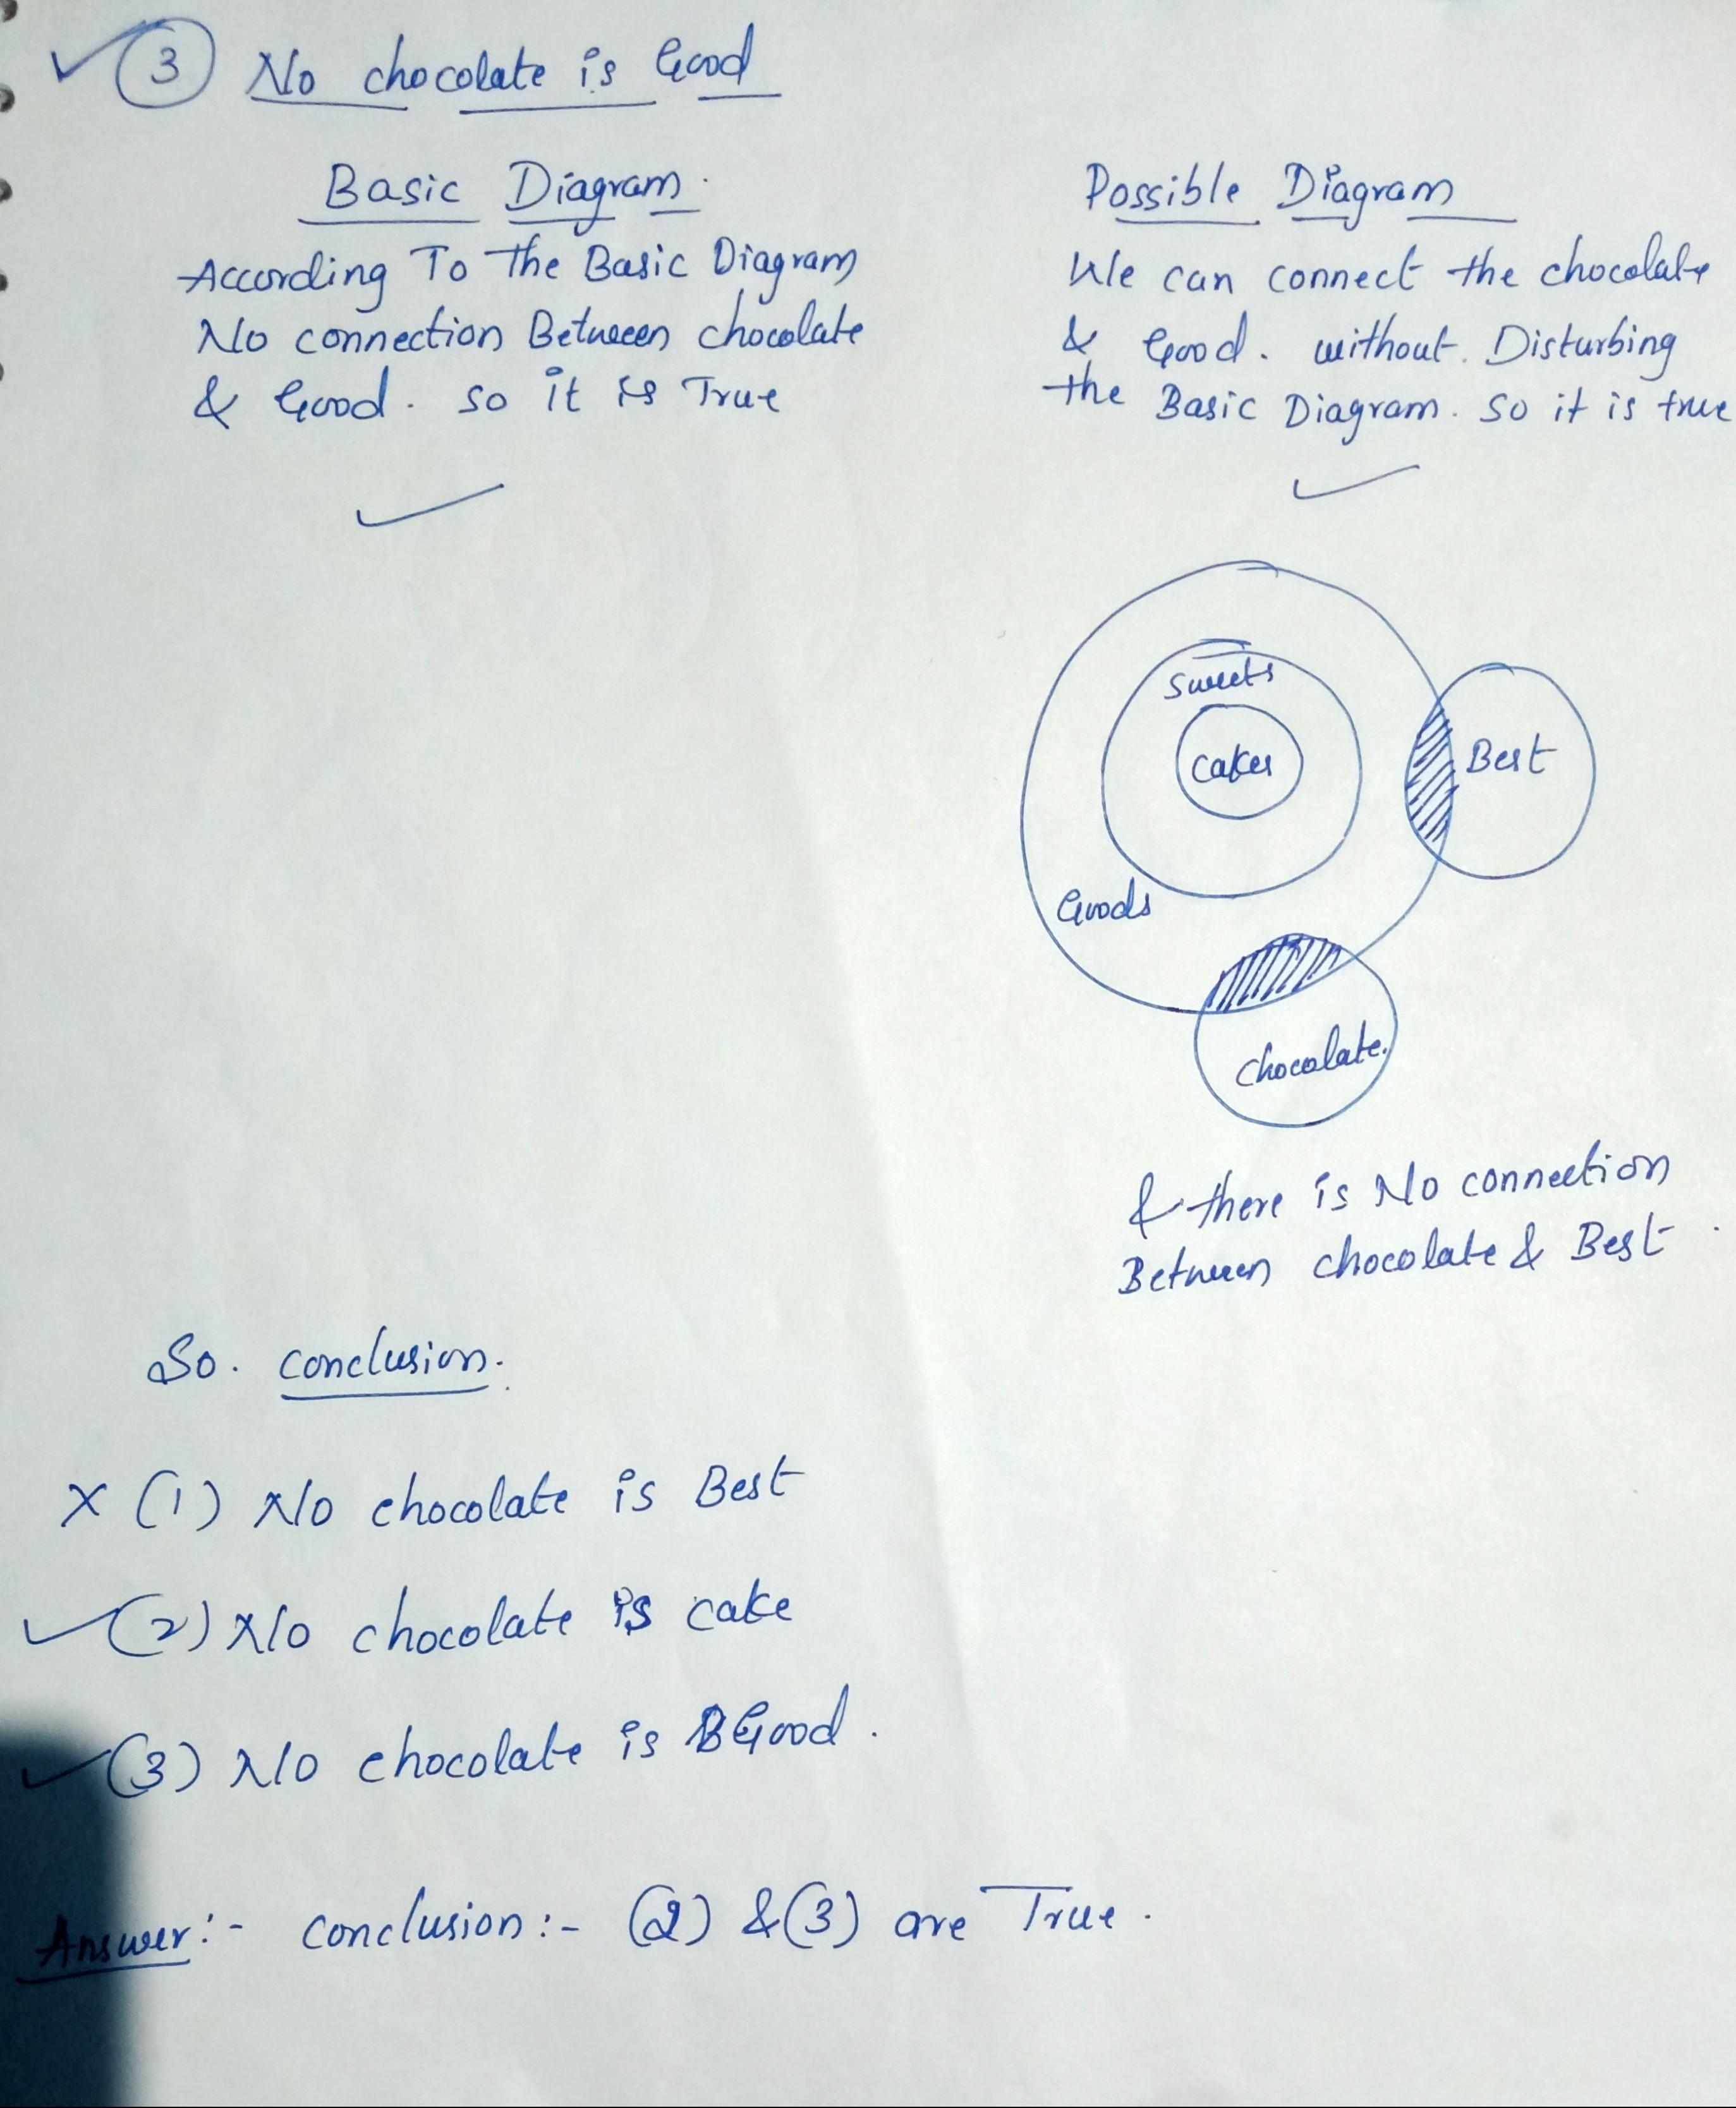 3 No chocolate is Good
Basic Diagram.
According To the Basic Diagram
No connection Between chocolate
& Good. so it is True
Possible Diagram
We can connect the chocolate
& Good. without. Disturbing
the Basic Diagram. So it is true
Sweets
Cakes
Best
Goods
Chocolate.
& there is No connection
Between chocolate & Best.
So. conclusion.
X (1) No chocolate is Best
(2) No chocolate is cake
(3) No chocolate is Good.
Answer:- conclusion:- (2) &(3) are True.